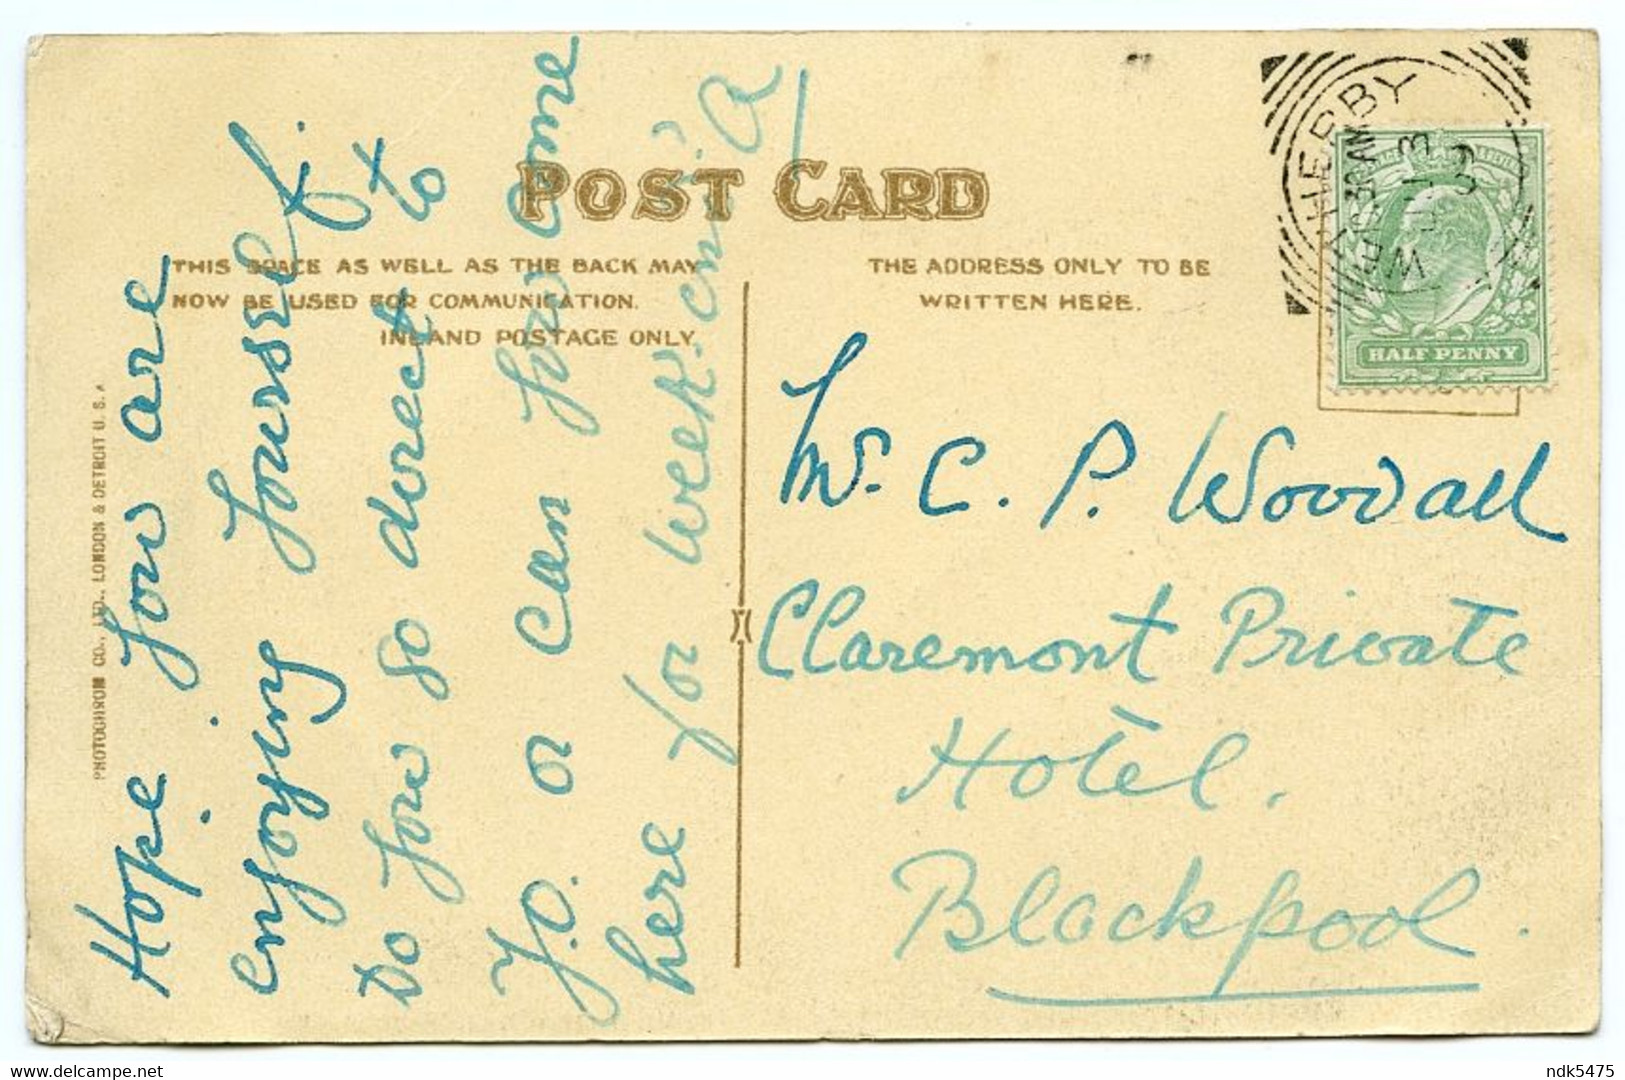 POST CARD
THIS SPACE AS WELL AS THE BACK MAY
NOW BE USED FOR COMMUNICATION.
INLAND POSTAGE ONLY
THE ADDRESS ONLY TO BE
WRITTEN HERE.
HALF PENNY
PHOTOCHROM CO., LTD., LONDON & DETROIT U.S.A
Hope you are
enjoying yourself.
Do you go direct to
Y.O. or can you come
here for week-end?
Mr. C. P. Woodall
Claremont Private
Hotel.
Blackpool.
ndk5475